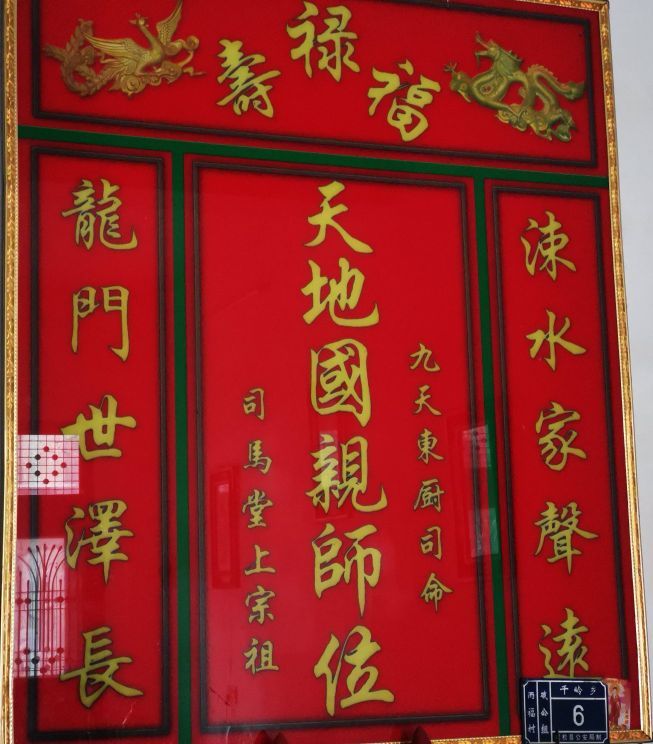 福禄壽
涑水家聲遠
九天東厨司命
天地國親師位
司馬堂上宗祖
龍門世澤長
千岭乡
6